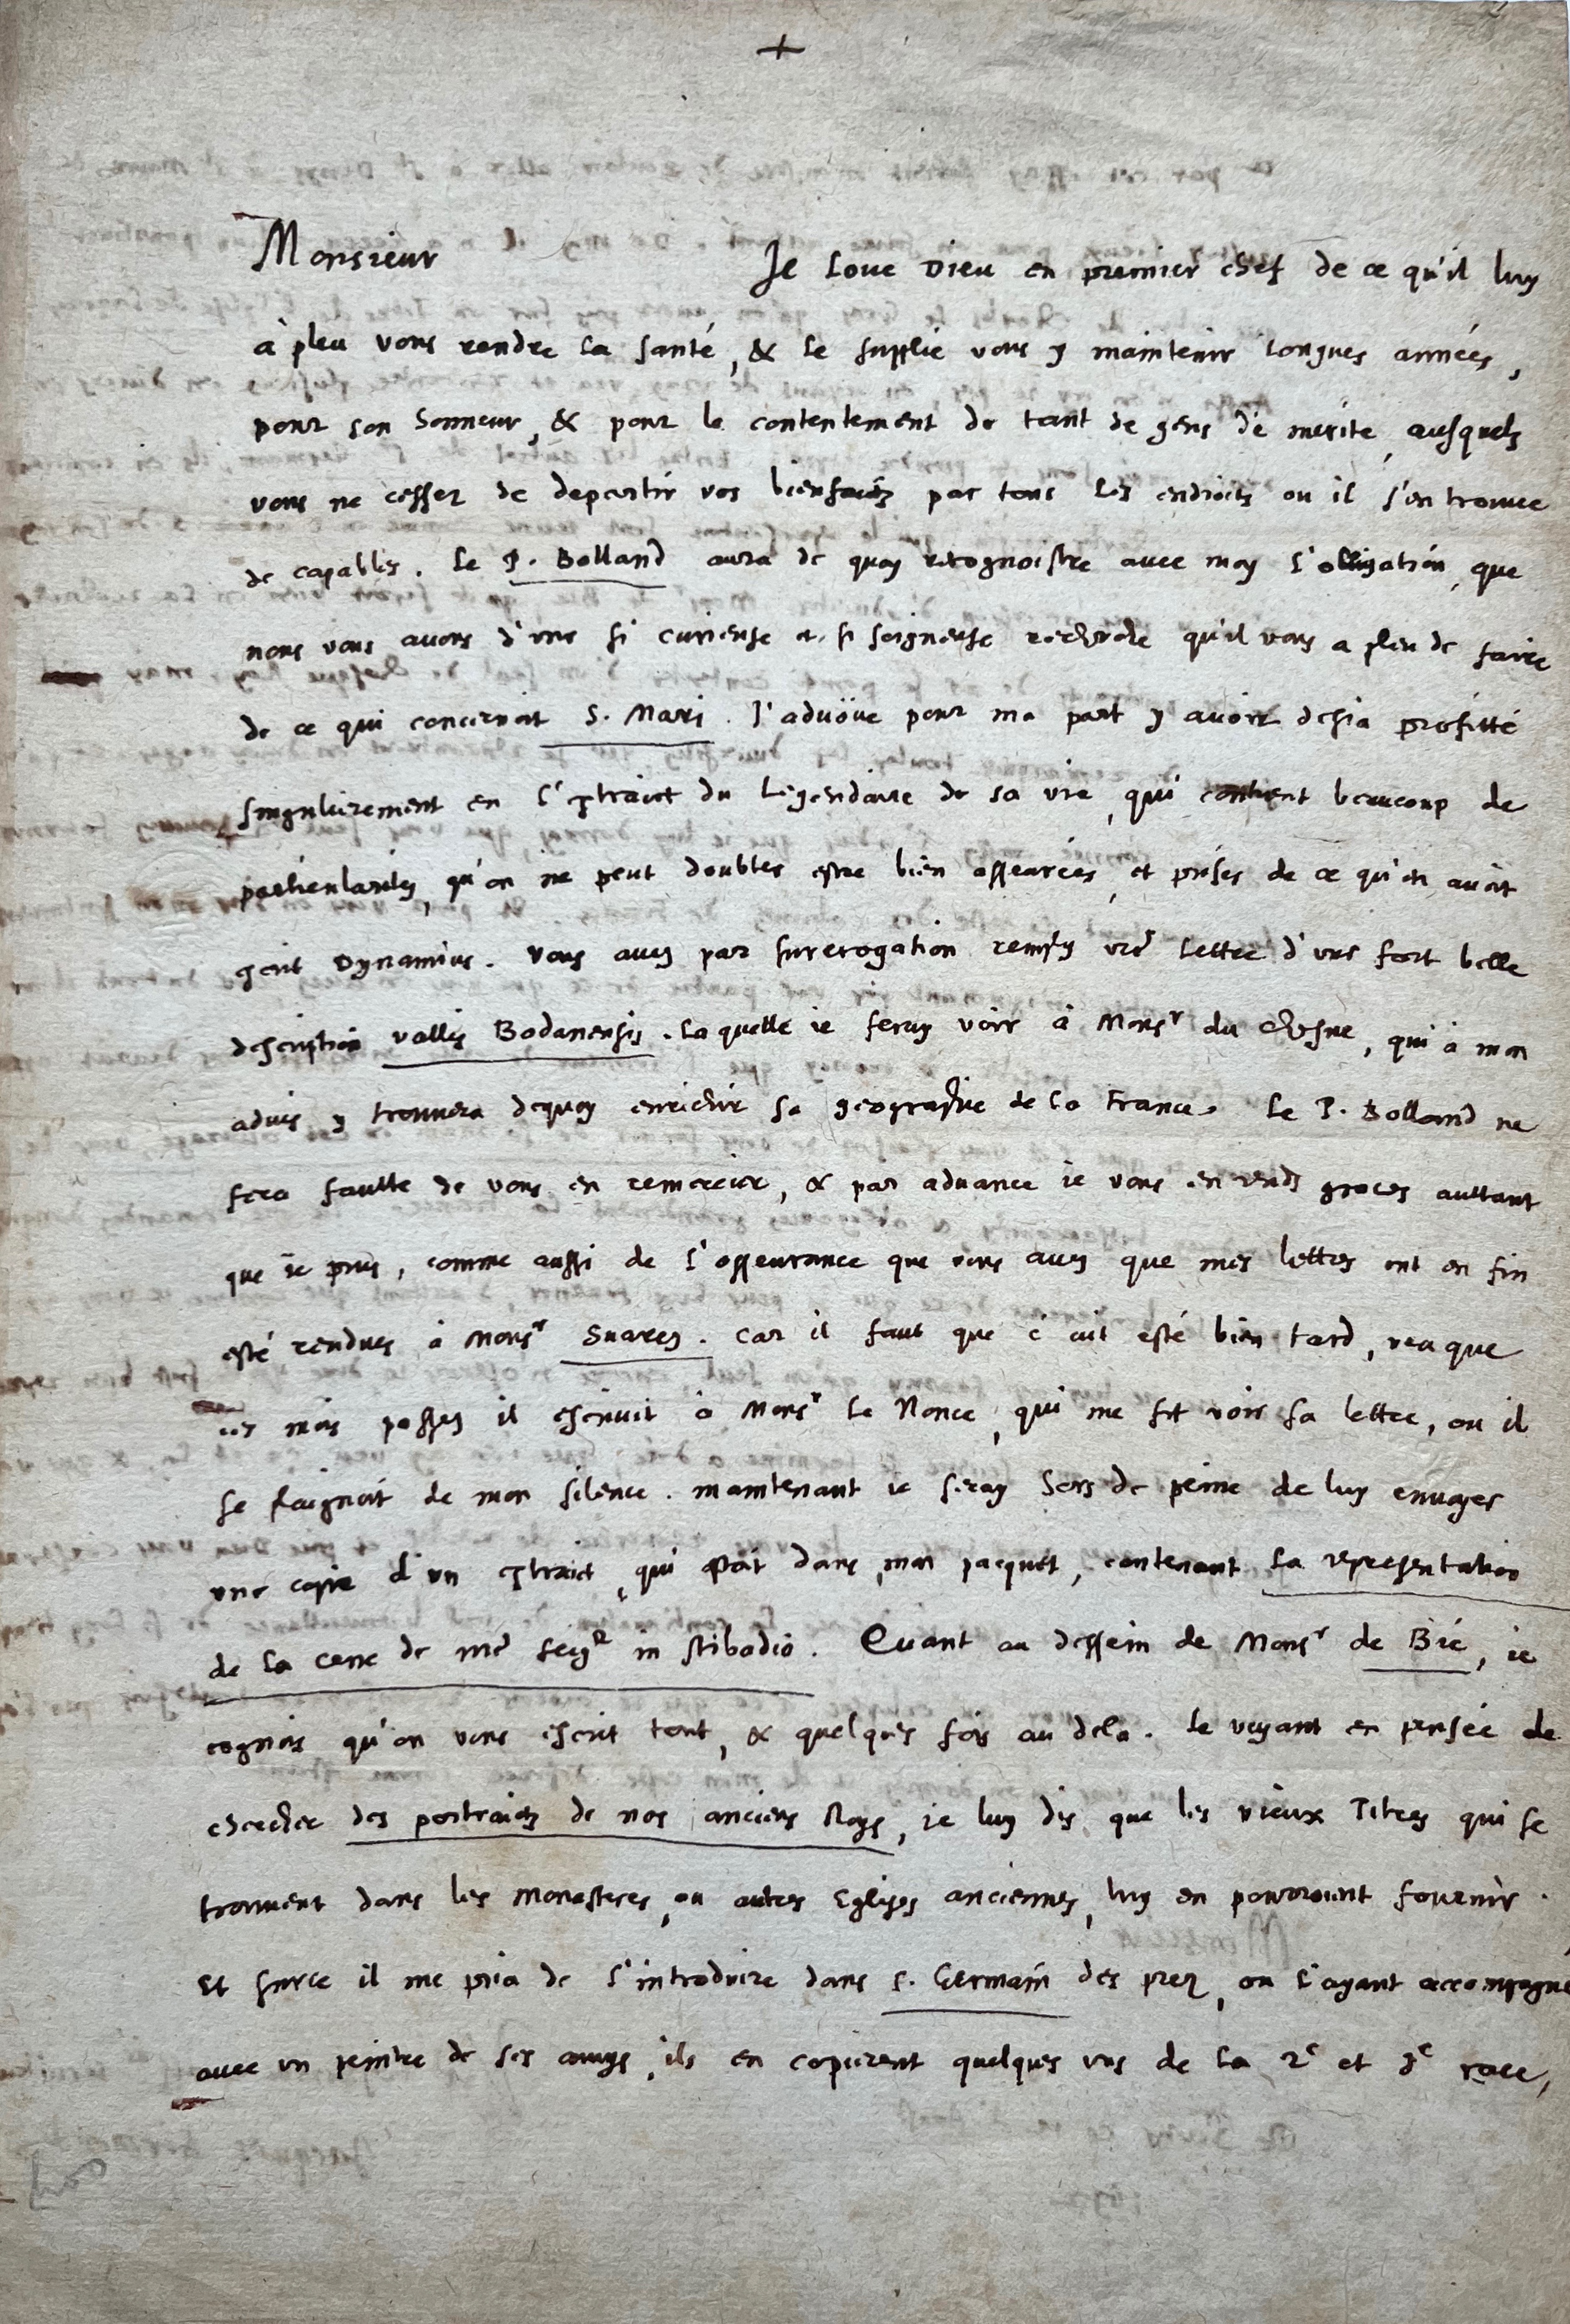 +
Monsieur Je loue Dieu en premier chef de ce qu'il luy
à pleu vous rendre la santé, & le supplie vous y maintenir longues années,
pour son honneur, & pour le contentement de tant de gens de mérite, ausquels
vous ne cesser de departir vos bienfaicts par tous les endroits ou il s'en trouve
de capables. Le P. Bolland aura de quoy recognoistre avec moy l'obligation, que
nous vous avons d'une si curieuse et si soigneuse recherche qu'il vous a pleu de faire
de ce qui concernoit S. Mari. J'advoüe pour ma part y avoir desia profitté
singulierement en l'extraict du Legendaire de sa vie, qui contient beaucoup de
particularitez, qu'on ne peut doubter estre bien asseurées, et prises de ce qu'en avoit
escrit Dynamius. Vous avez par surerogation remply vrē lettre d'une fort belle
description vallis Bodanensis. Laquelle ie feray voir à Monsr du Chesne, qui à mon
advis y trouvera dequoy enrichir sa geographie de la France. Le P. Bolland ne
fera faulte de vous en remercier, & par advance ie vous en rends graces aultant
que ie puis, comme aussi de l'asseurance que vous avez que mes lettres ont en fin
esté rendues à Monsr Suarez. Car il faut que c'ait esté bien tard, veu que
ces mois passez il escrivit à Monsr le Nonce, qui me fit voir sa lettre, ou il
se plaignoit de mon silence. maintenant ie seray hors de peine de luy envoyer
une copie d'un extraict, qui estoit dans mon pacquet, contenant la representation
de la cene de nrē seigr in stibadio. Quant au dessein de Monsr de Bie, ie
cognois qu'on vous escrit tout, & quelques fois au dela. Le voyant en pensée de
chercher des portraicts de nos anciens Roys, je luy dis que les vieux Titres qui se
trouvent dans les Monasteres, ou autres Eglises anciennes, luy en pourroient fournir.
Et surce il me pria de l'introduire dans S. Germain des prez, ou l'ayant accompagné
avec un peintre de ses amys, ils en copierent quelques uns de la 2e et 3e race,